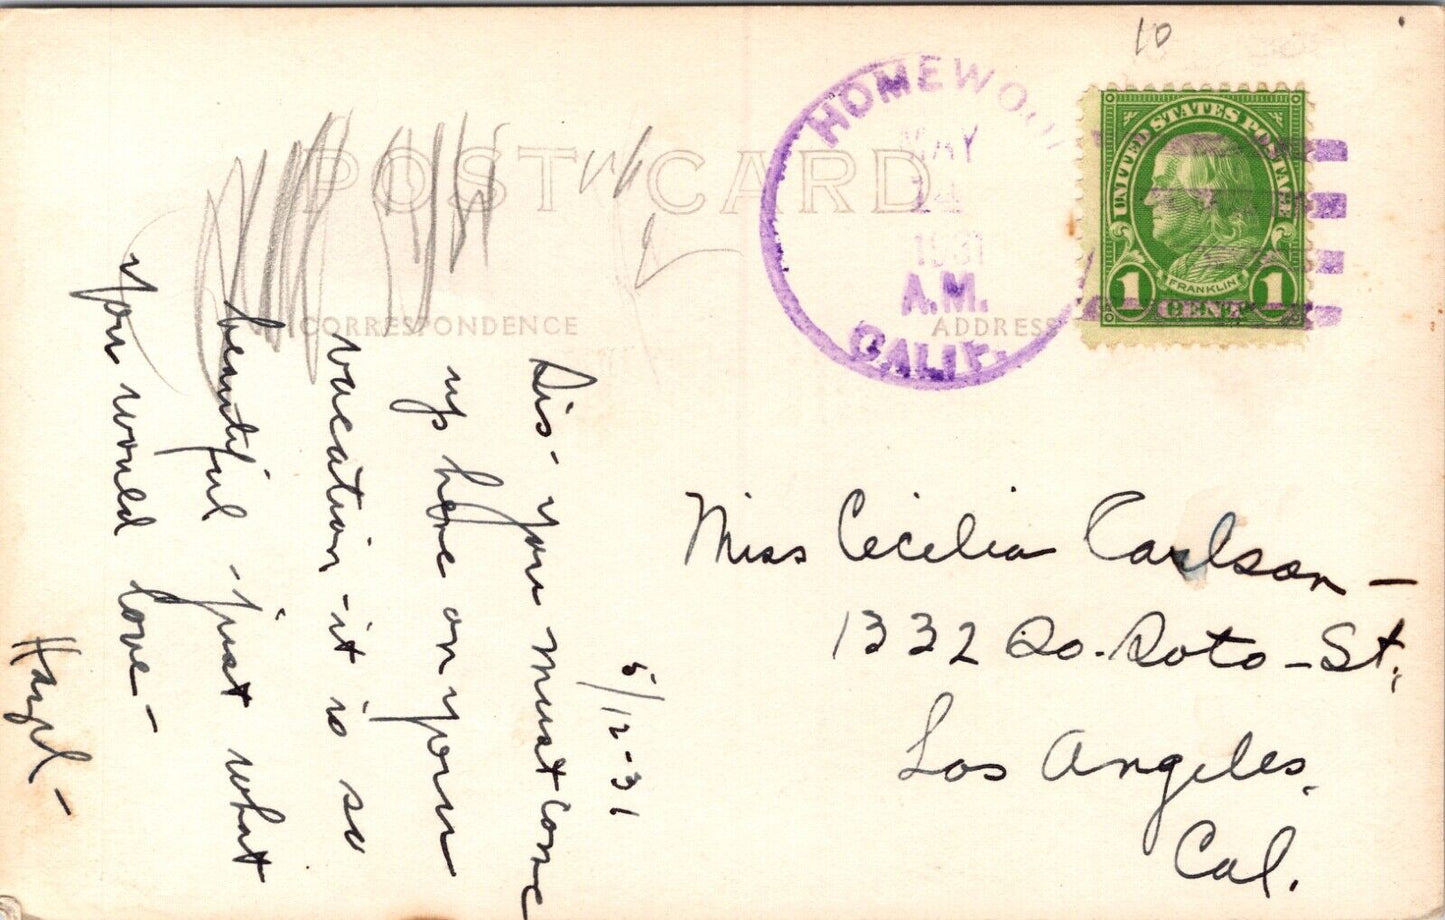 10
POST CARD
CORRESPONDENCE
ADDRESS
HOMEWOOD
MAY
14
1931
A.M.
CALIF.
UNITED STATES POSTAGE
FRANKLIN
1 CENT 1
5/12-31
Sis- you must come
up here on your
vacation - it is so
beautiful - just what
you would love -
Hazel -
Miss Cecilia Carlson -
1332 So. Soto - St.,
Los Angeles,
Cal.